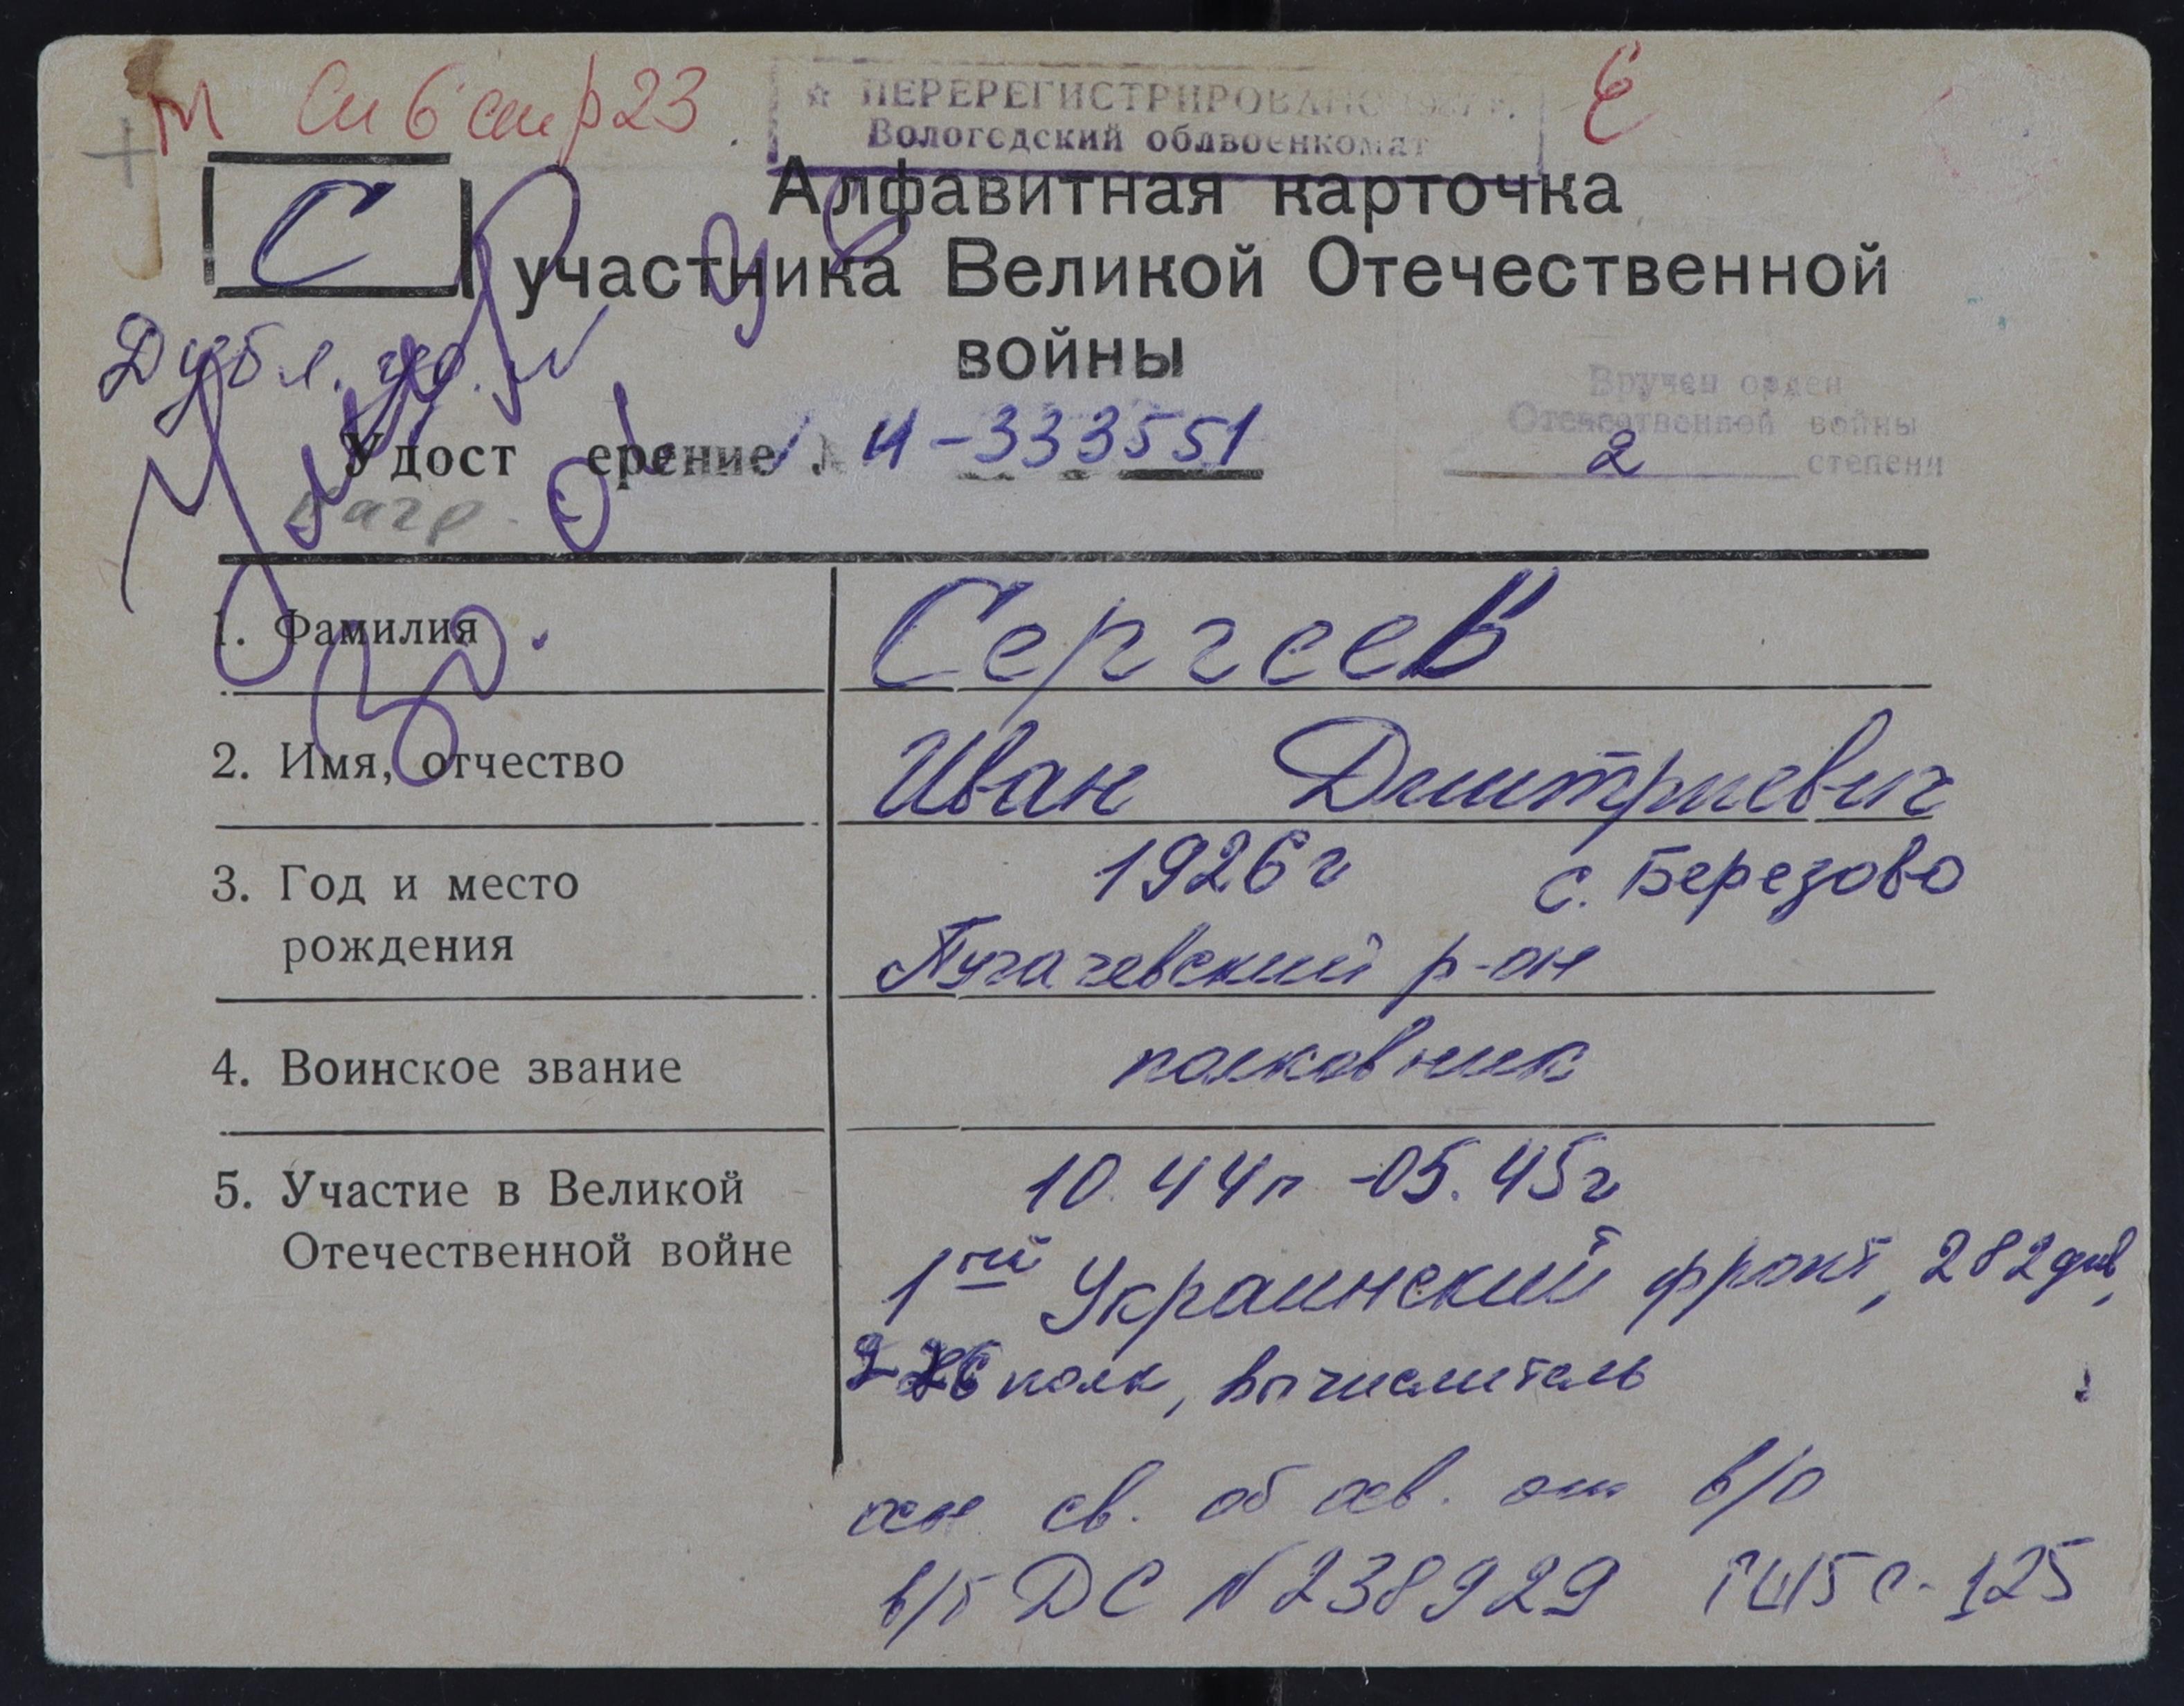 М См 6 стр 23
☆ ПЕРЕРЕГИСТРИРОВАНО 1987 г.
Вологодский облвоенкомат
С
Алфавитная карточка
участника Великой Отечественной
войны
Дубл. уд. №
Удостоверение № И-333551
Вручен орден
Отечественной войны
2 степени
1. Фамилия Сергеев
2. Имя, отчество Иван Дмитриевич
3. Год и место 1926 г с. Березово
рождения Пугачевский р-он
4. Воинское звание полковник
5. Участие в Великой 10.44г -05.45г
Отечественной войне 1ый Украинский фронт, 282 див,
226 полк, вычислитель
осн св. об осв. от в/о
в/б ДС N 238929 125